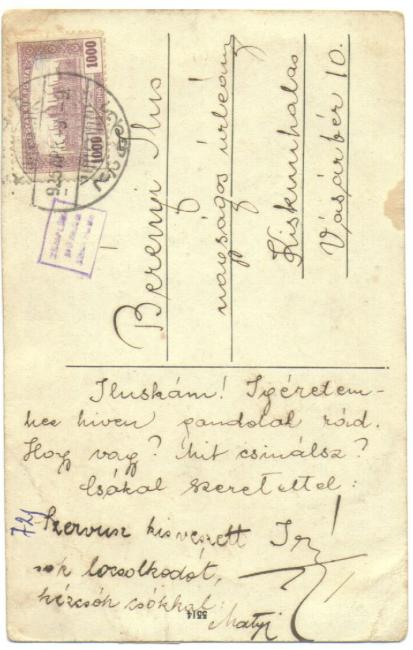 Berényi Ilus
nagyságos úrleány
Kiskunhalas
Vásártér 10.
Iluskám! Igéretem-
hez hiven gondolok rád.
Hogy vagy? Mit csinálsz?
Csókol szeretettel:
Szervusz kis
Irj!
sok locsolkodót,
kézcsók csókkal:
Matyi
1000
1000
5514